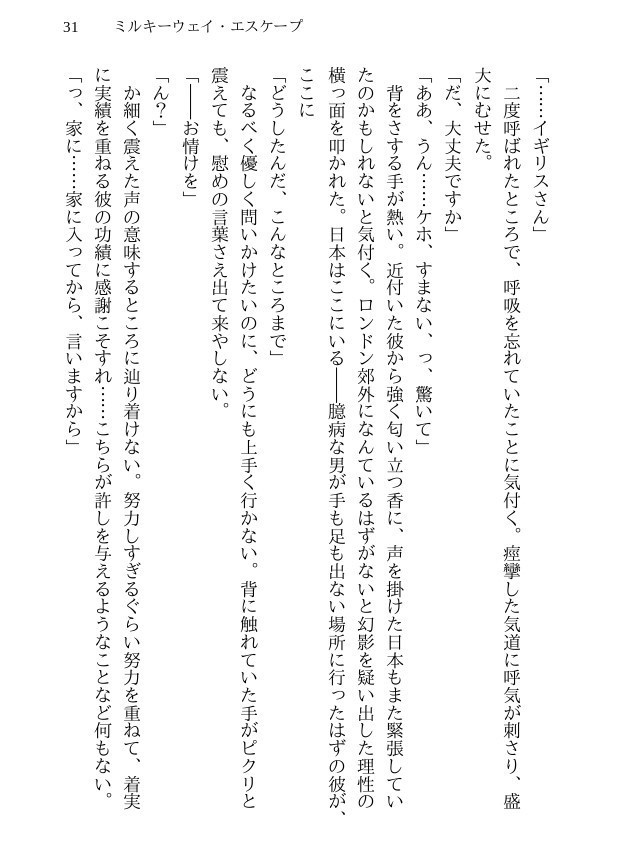 31 ミルキーウェイ・エスケープ
「……イギリスさん」
二度呼ばれたところで、呼吸を忘れていたことに気付く。痙攣した気道に呼気が刺さり、盛
大にむせた。
「だ、大丈夫ですか」
「ああ、うん……ケホ、すまない、っ、驚いて」
背をさする手が熱い。近付いた彼から強く匂い立つ香に、声を掛けた日本もまた緊張してい
たのかもしれないと気付く。ロンドン郊外になんているはずがないと幻影を疑い出した理性の
横っ面を叩かれた。日本はここにいる――臆病な男が手も足も出ない場所に行ったはずの彼が、
ここに
「どうしたんだ、こんなところまで」
なるべく優しく問いかけたいのに、どうにも上手く行かない。背に触れていた手がピクリと
震えても、慰めの言葉さえ出て来やしない。
「――お情けを」
「ん?」
か細く震えた声の意味するところに辿り着けない。努力しすぎるぐらい努力を重ねて、着実
に実績を重ねる彼の功績に感謝こそすれ……こちらが許しを与えるようなことなど何もない。
「っ、家に……家に入ってから、言いますから」